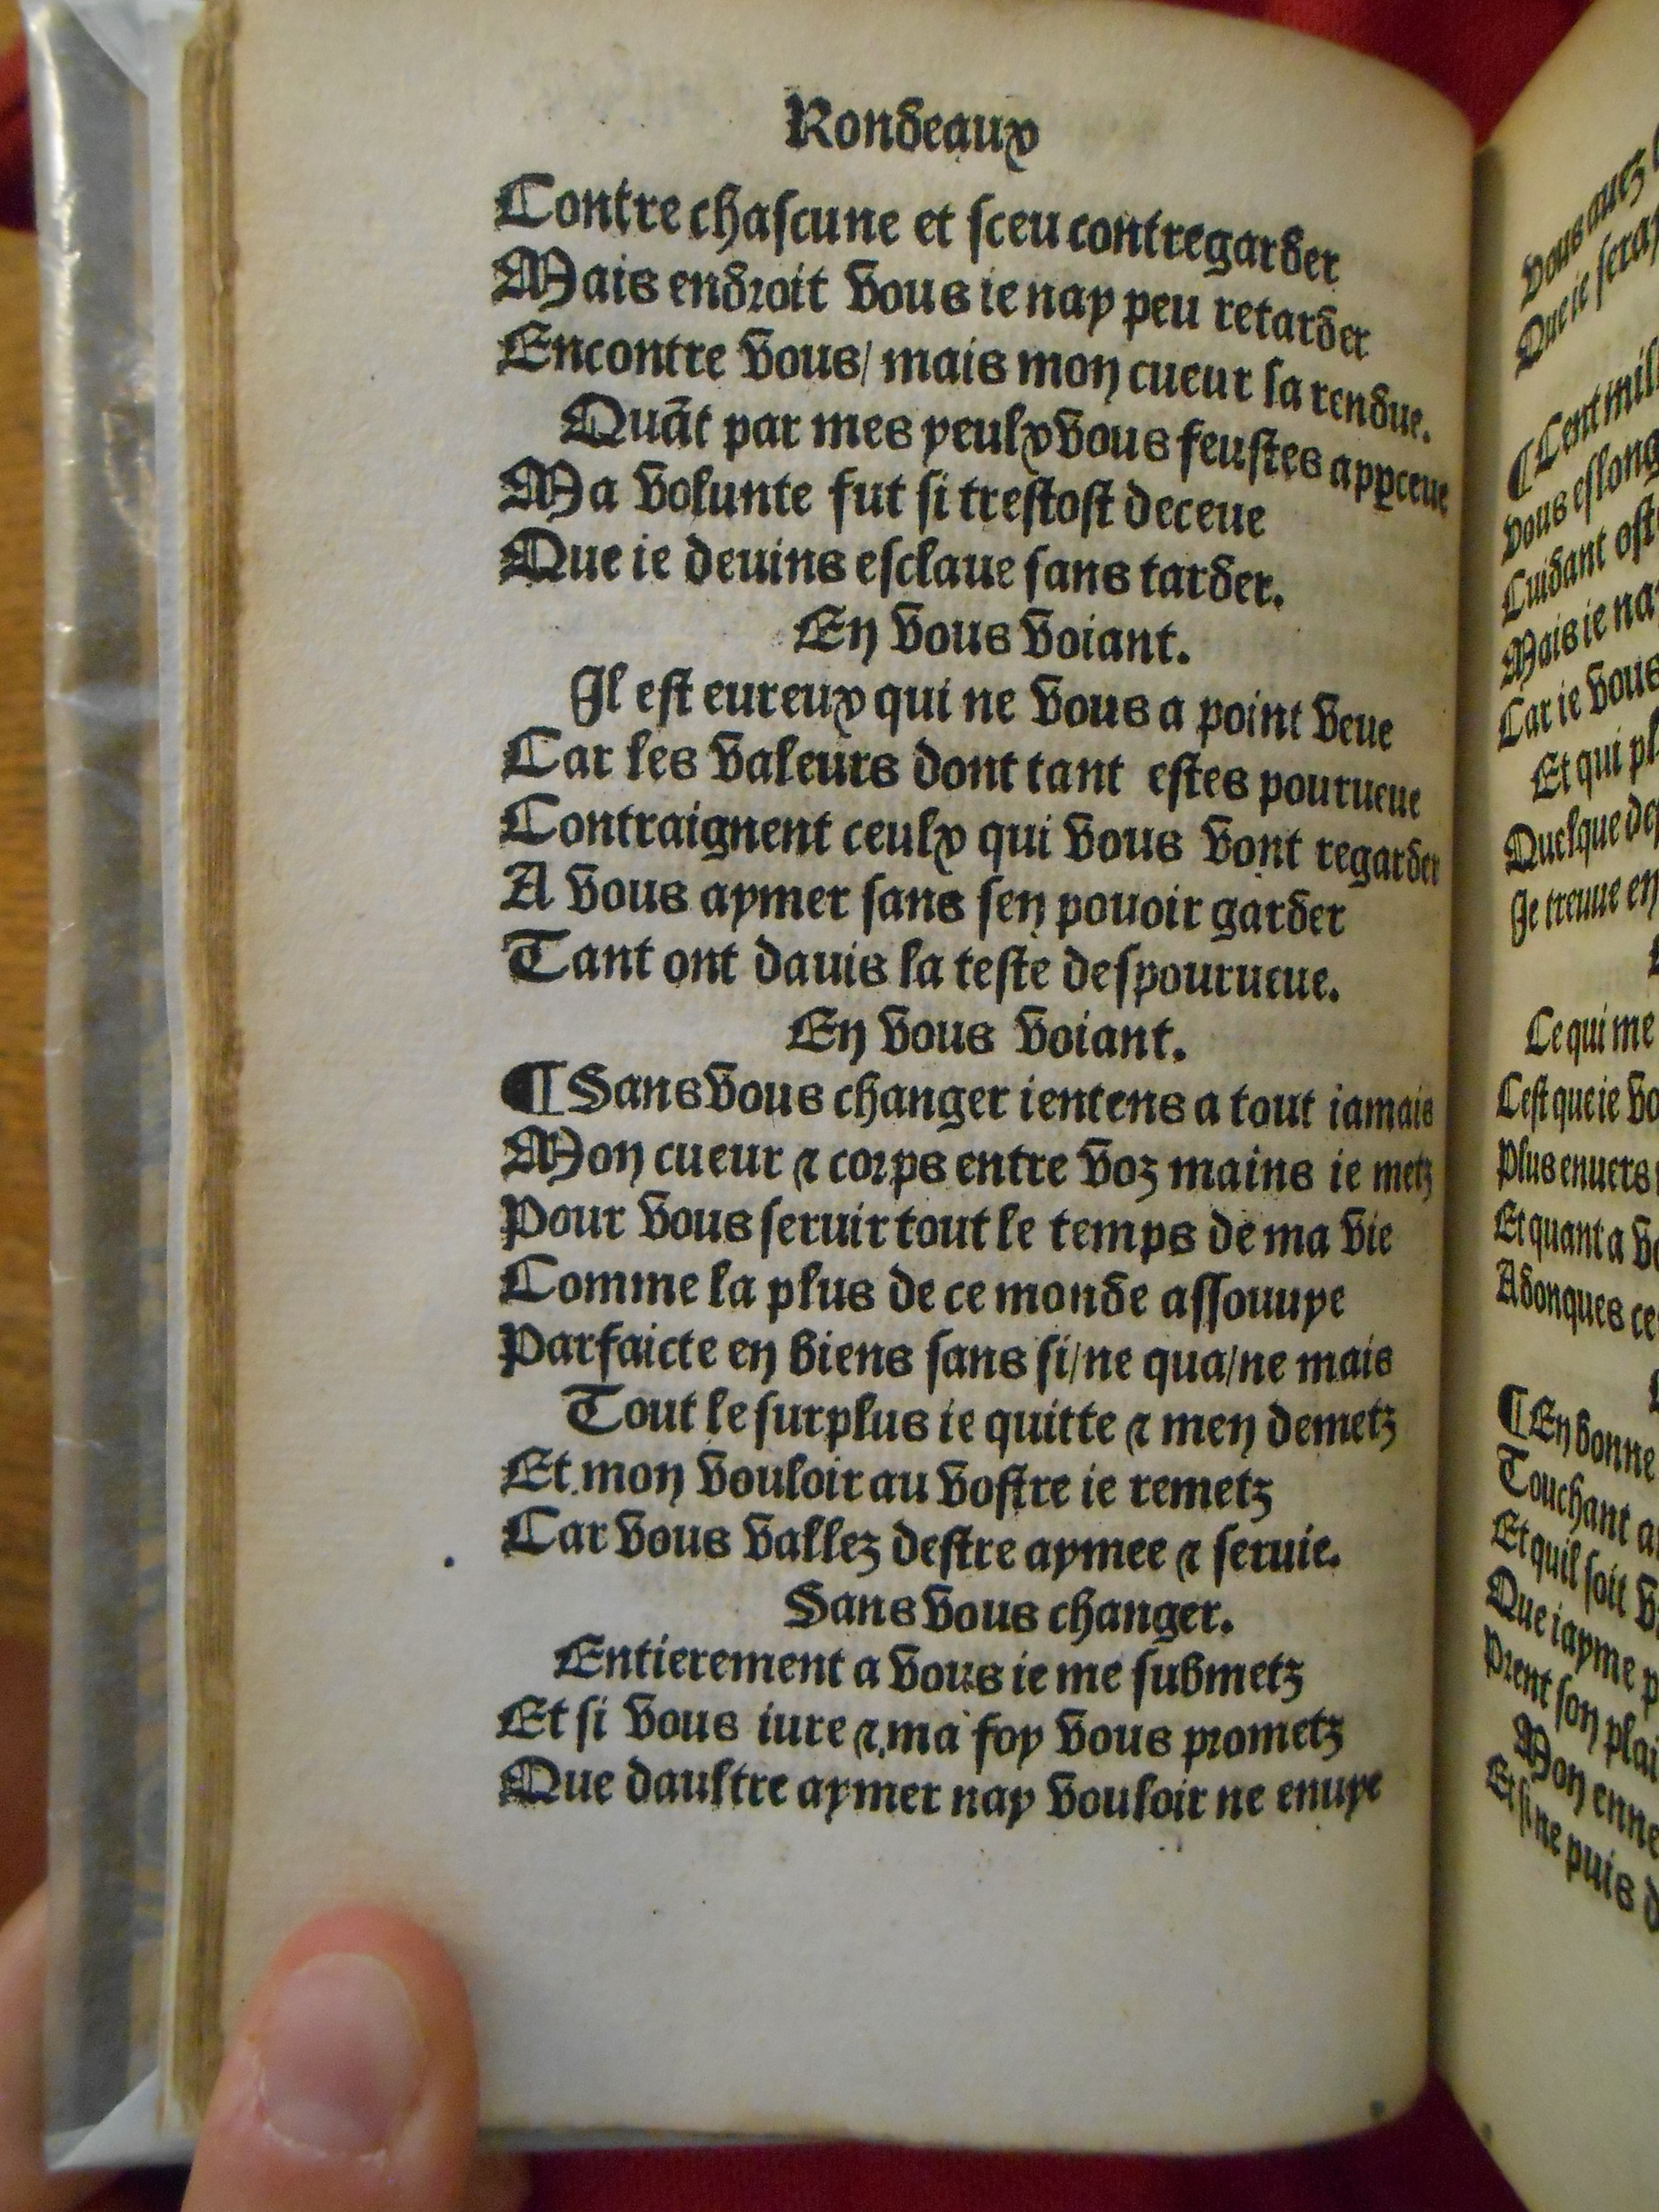 Rondeaux
Contre chascune et sceu contregarder
Mais endroit vous ie nay peu retarder
Encontre vous/ mais mon cueur sa rendue.
Quāt par mes yeulx vous feustes apꝑceue
Ma volunte fut si trestost deceue
Que ie deuins esclaue sans tarder.
En vous voiant.
Il est eureux qui ne vous a point veue
Car les valeurs dont tant estes pourueue
Contraignent ceulx qui vous vont regarder
A vous aymer sans sen pouoir garder
Tant ont dauis la teste despourueue.
En vous voiant.
¶ Sans vous changer ientens a tout iamais
Mon cueur ⁊ corps entre voz mains ie metz
Pour vous seruir tout le temps de ma vie
Comme la plus de ce monde assouuye
Parfaicte en biens sans si/ne qua/ne mais
Tout le surplus ie quitte ⁊ men demetz
Et mon vouloir au vostre ie remetz
Car vous vallez destre aymee ⁊ seruie.
Sans vous changer.
Entierement a vous ie me submetz
Et si vous iure ⁊ ma foy vous prometz
Que daultre aymer nay vouloir ne enuye
vous auez
Que ie
¶ Cent
vous
Cuidant
Mais ie
Car ie vous
Et qui
Quelque
Ie treuue en
Ce qui me
Cest que ie
Plus enuers
Et quant a
Adonques
¶ En bonne
Touchant
Et quil soit
Que iayme
Prent son
Mon
Et si ne puis